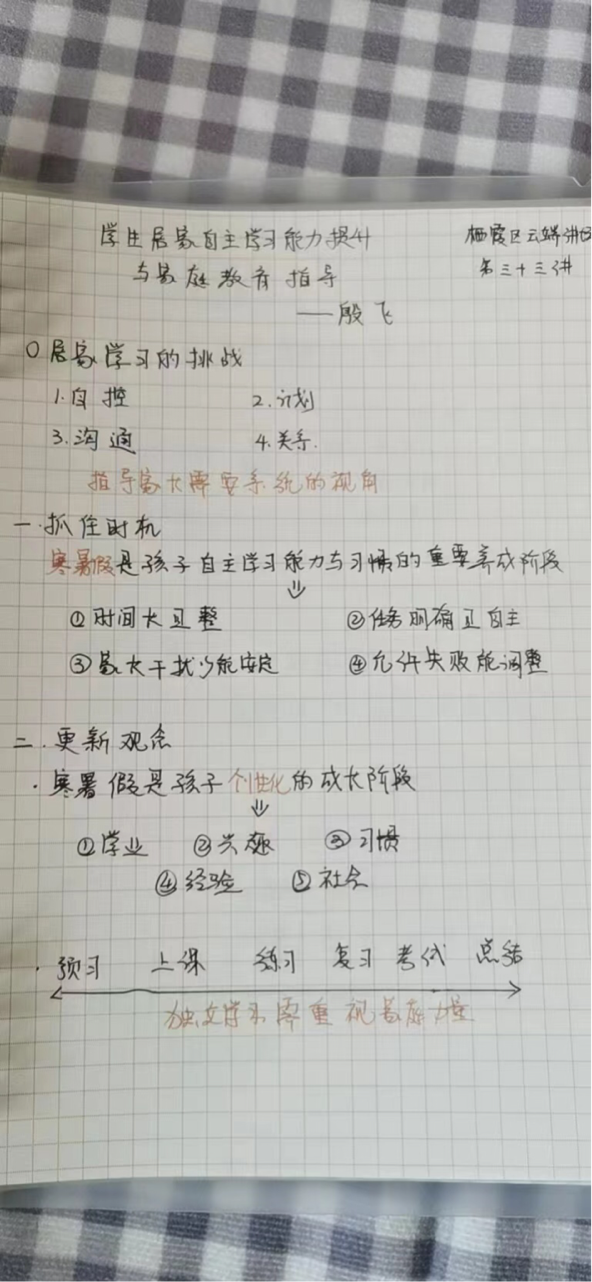 学生居家自主学习能力提升
与家庭教育指导
——殷飞
栖霞区云端讲
第三十三讲
〇居家学习的挑战
1.自控 2.计划
3.沟通 4.关系.
指导家长需要系统的视角
一.抓住时机
寒暑假是孩子自主学习能力与习惯的重要养成阶段
⇓
①时间长且整 ②任务明确且自主
③家长干扰少能安定 ④允许失败能调整
二.更新观念
·寒暑假是孩子个性化的成长阶段
⇓
①学业 ②兴趣 ③习惯
④经验 ⑤社会
·预习 上课 练习 复习 考试 总结
需重视家庭力量